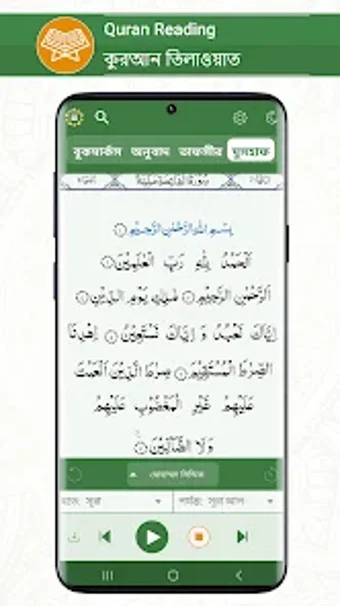 Quran Reading
কুরআন তিলাওয়াত
বুকমার্কস অনুবাদ তাফসীর মুসহাফ
بِسْمِ اللّٰهِ الرَّحْمٰنِ الرَّحِيْمِ ۝١
اَلْحَمْدُ لِلّٰهِ رَبِّ الْعٰلَمِيْنَ ۝١
الرَّحْمٰنِ الرَّحِيْمِ ۝ مٰلِكِ يَوْمِ الدِّيْنِ ۝
اِيَّاكَ نَعْبُدُ وَ اِيَّاكَ نَسْتَعِيْنُ ۝ اِهْدِنَا
الصِّرَاطَ الْمُسْتَقِيْمَ ۝ صِرَاطَ الَّذِيْنَ اَنْعَمْتَ
عَلَيْهِمْ غَيْرِ الْمَغْضُوْبِ عَلَيْهِمْ
وَلَا الضَّآلِّيْنَ ۝
সূরা
পর্যন্ত: সূরা আল